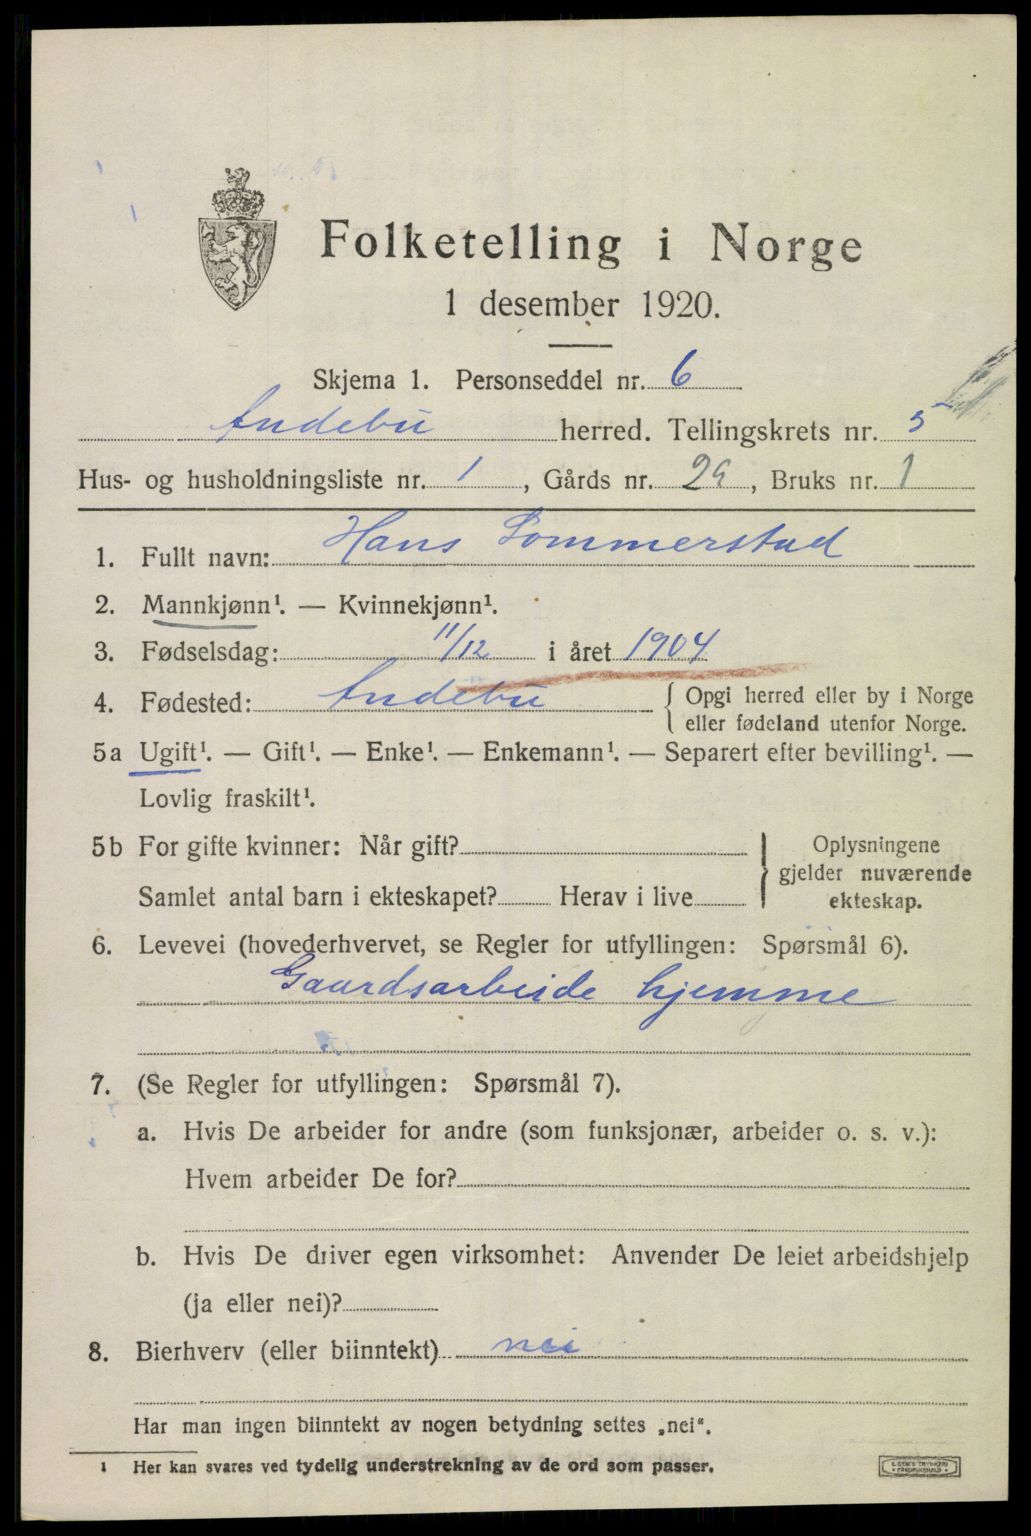 Folketelling i Norge
1 desember 1920.
Skjema 1. Personseddel nr. 6
Andebu herred. Tellingskrets nr. 5
Hus- og husholdningsliste nr. 1, Gårds nr. 29, Bruks nr. 1
1. Fullt navn: Hans Sommerstad
2. Mannkjønn¹. — Kvinnekjønn¹.
3. Fødselsdag: 11/12 i året 1904
4. Fødested: Andebu { Opgi herred eller by i Norge
eller fødeland utenfor Norge.
5a Ugift¹. — Gift¹. — Enke¹. — Enkemann¹. — Separert efter bevilling¹. —
Lovlig fraskilt¹.
5b For gifte kvinner: Når gift?
Samlet antal barn i ekteskapet? Herav i live
} Oplysningene
gjelder nuværende
ekteskap.
6. Levevei (hovederhvervet, se Regler for utfyllingen: Spørsmål 6).
Gaardsarbeide hjemme
7. (Se Regler for utfyllingen: Spørsmål 7).
a. Hvis De arbeider for andre (som funksjonær, arbeider o. s. v.):
Hvem arbeider De for?
b. Hvis De driver egen virksomhet: Anvender De leiet arbeidshjelp
(ja eller nei)?
8. Bierhverv (eller biinntekt) nei
Har man ingen biinntekt av nogen betydning settes „nei“.
¹ Her kan svares ved tydelig understrekning av de ord som passer.